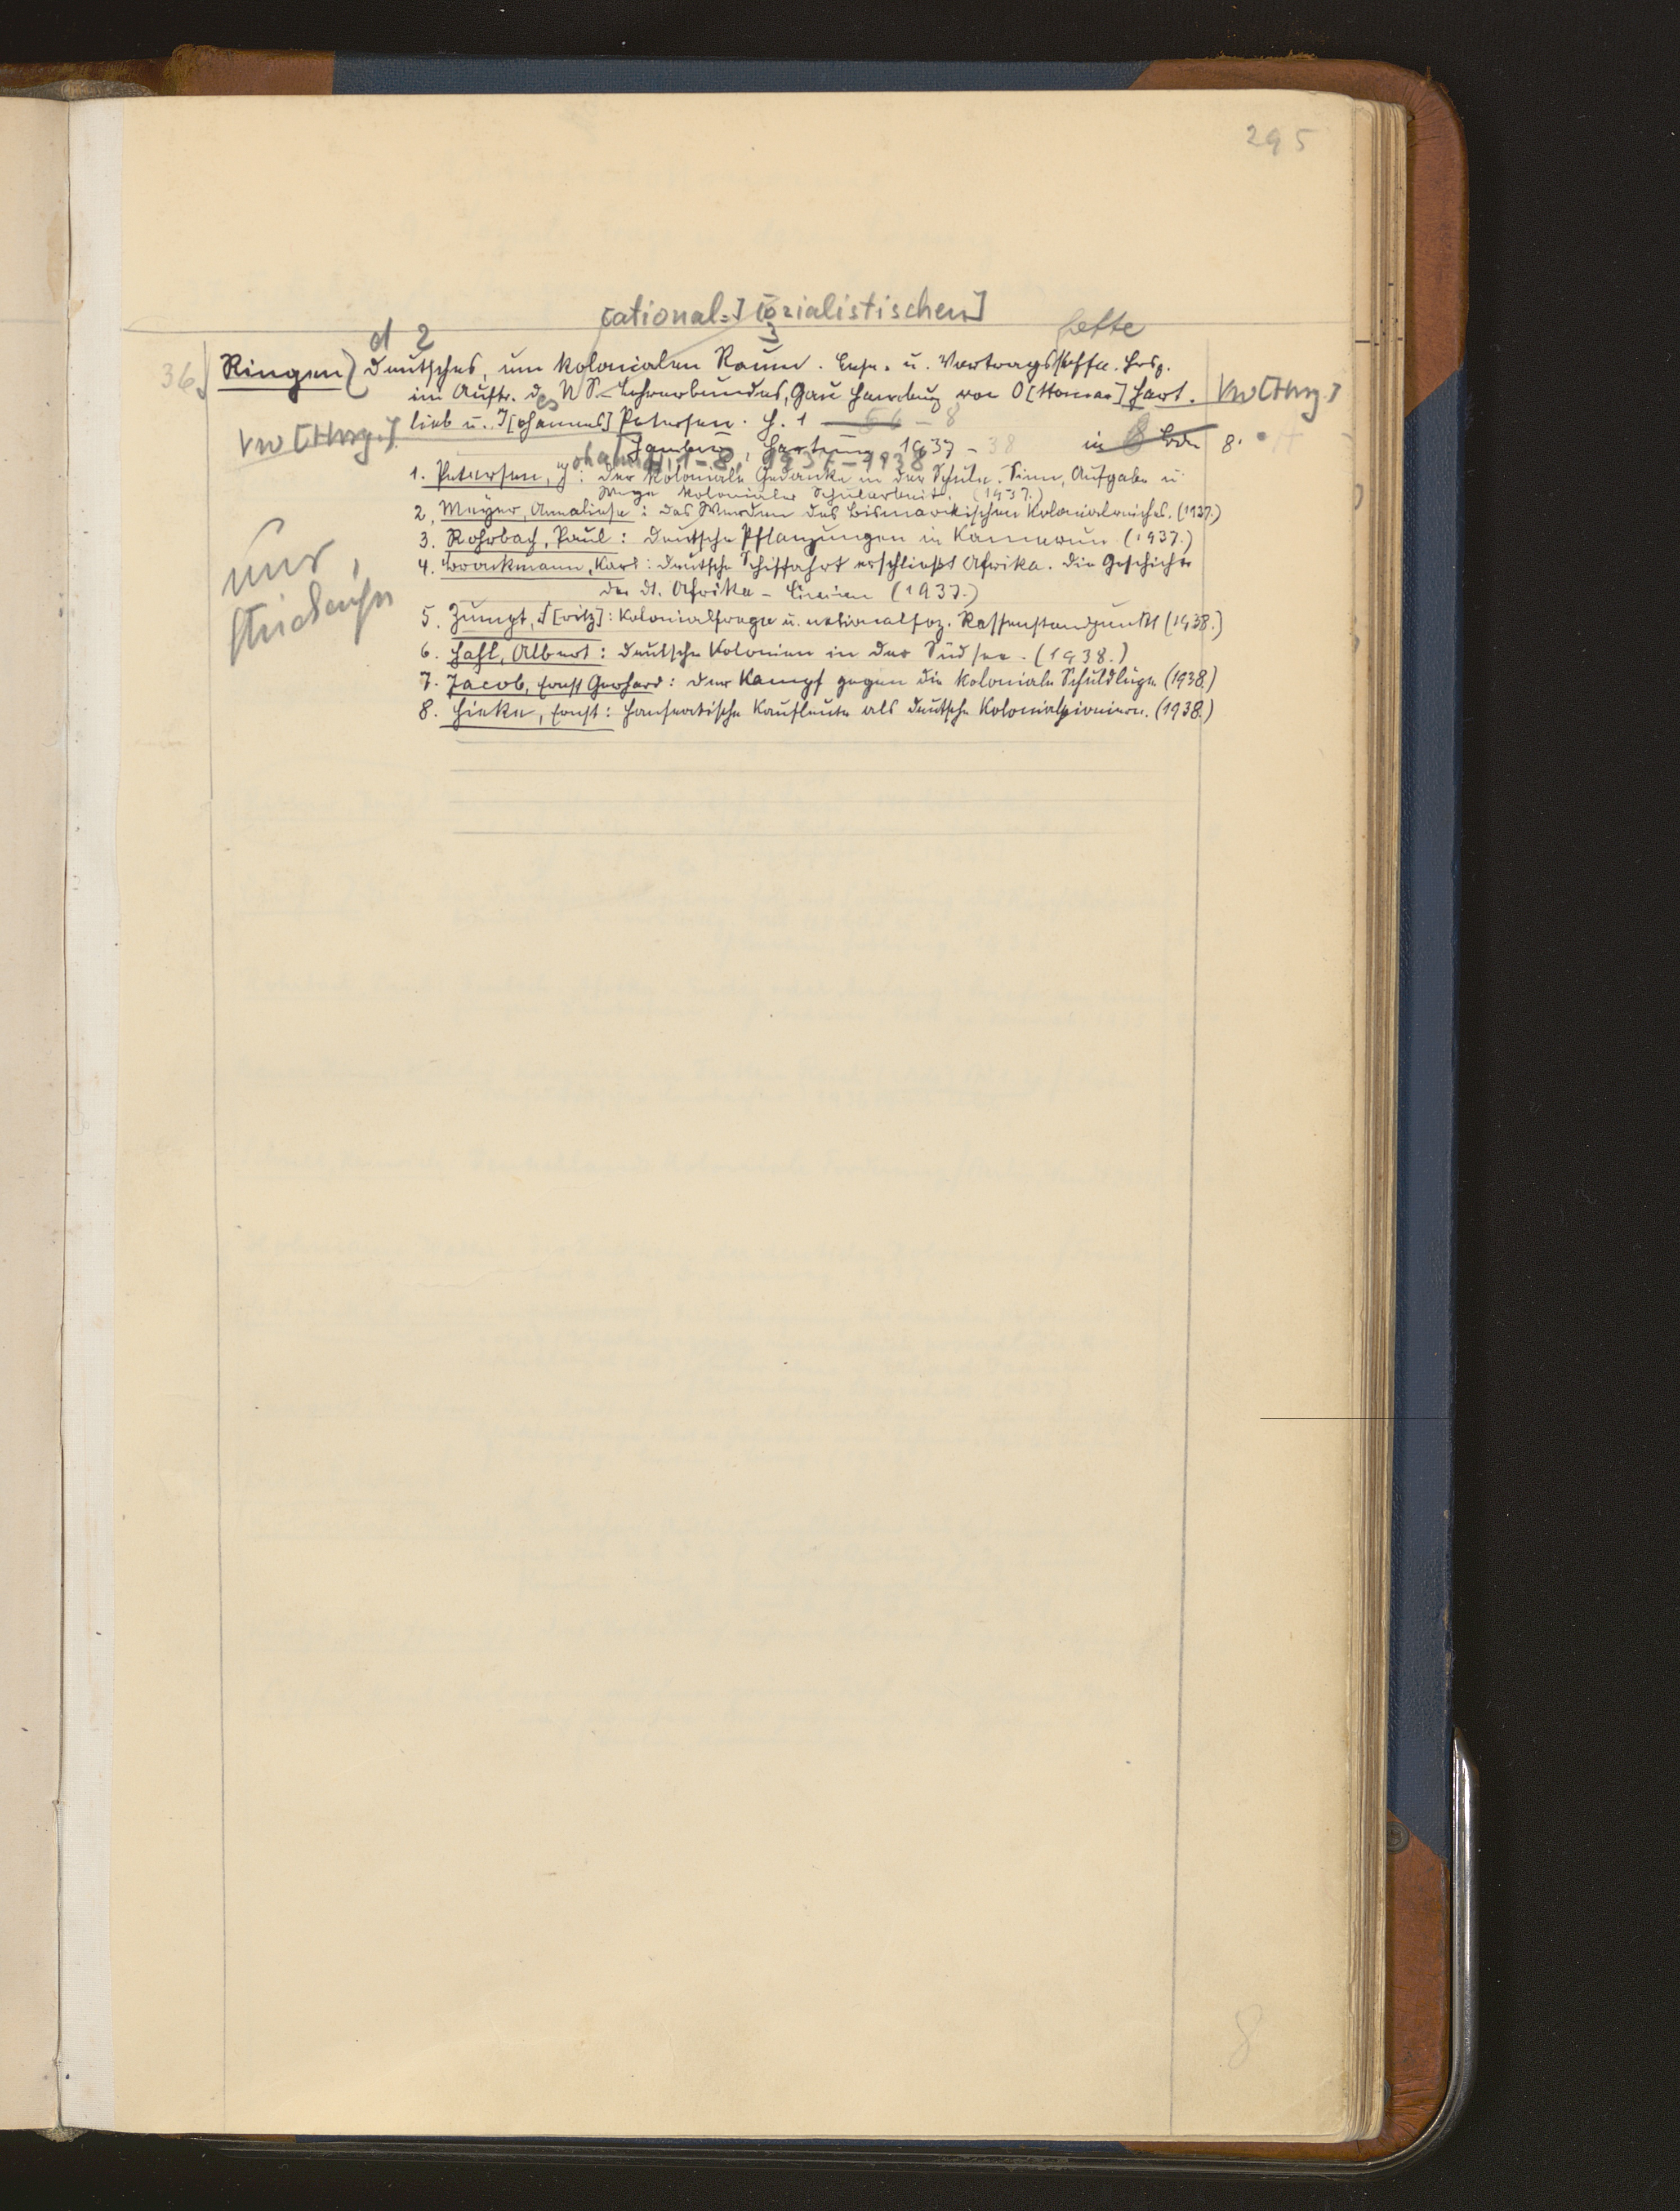 295
[ational=] [ozialistischen]
d 2 3 Hefte
36. Ringen) Deutsches, um kolonialen Raum. Lese- u. Vortragsstoffe. Hrsg.
im Auftr. des NS-Lehrerbundes, Gau Hamburg von O[ttomar] Hart- VW [Hrg.]
VW [Hrg.] lieb u. J[ohannes] Petersen. H. 1 – 8
Hamburg, Hartung 1937 – 38 in 8 Bde 8°
ohannes 1–8, 1937–1938
1. Petersen, J: Der koloniale Gedanke in der Schule. Sinn, Aufgabe u.
Wege kolonialer Schularbeit. (1937.)
2. Meyer, Annaliese: Das Werden des Bismarckischen Kolonialreiches. (1937.)
3. Rohrbach, Paul: Deutsche Pflanzungen in Kamerun (1937.)
4. Brackmann, Karl: Deutsche Schiffahrt erschließt Afrika. Die Geschichte
der dt. Afrika-Linien (1937.)
5. Zumpt, F[ritz]: Kolonialfrage u. nationalsoz. Rassenstandpunkt (1938.)
6. Hahl, Albert: Deutsche Kolonien in der Südsee. (1938.)
7. Jacob, Ernst Gerhard: Der Kampf gegen die koloniale Schuldlüge (1938.)
8. Hieke, Ernst: Hanseatische Kaufleute als deutsche Kolonialpioniere. (1938.)
8